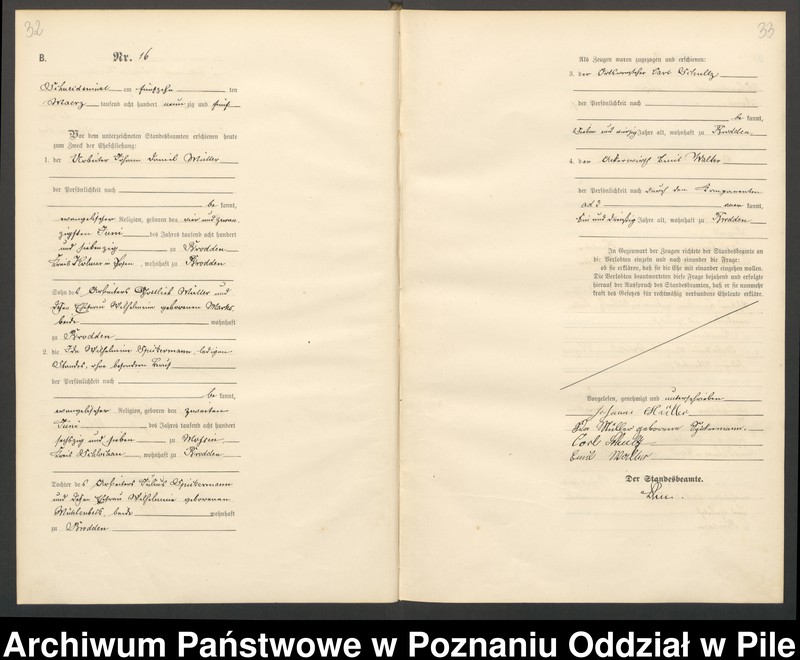 32
B.
Nr. 16
Schneidemühl am fünfzehn ten
Maerz tausend acht hundert neunzig und fünf
Vor dem unterzeichneten Standesbeamten erschienen heute
zum Zweck der Eheschließung:
1. der Arbeiter Johann Daniel Müller
der Persönlichkeit nach
be kannt,
evangelischer Religion, geboren den vier und zwan
zigsten Juni des Jahres tausend acht hundert
und siebenzig zu Brodden
Kreis Kolmar in Posen, wohnhaft zu Brodden
Sohn des Arbeiters Gottlieb Müller und
dessen Ehefrau Wilhelmine geborenen Marks
beide wohnhaft
zu Brodden
2. die Ida Wilhelmine Spickermann, ledigen
Standes, ohne besonderen Beruf
der Persönlichkeit nach
be kannt,
evangelischer Religion, geboren den zweiten
Juni des Jahres tausend acht hundert
sechszig und sieben zu
Kreis, wohnhaft zu Brodden
Tochter des Arbeiters Julius Spickermann
und dessen Ehefrau Wilhelmine geborenen
beide wohnhaft
zu Brodden
33
Als Zeugen waren zugezogen und erschienen:
3. der Ortsvorsteher Carl Schultz
der Persönlichkeit nach
be kannt,
sieben und vierzig Jahre alt, wohnhaft zu Brodden
4. der Ackerwirth Emil Walter
der Persönlichkeit nach durch den Komparenten
ad 3 aner kannt,
ein und dreißig Jahre alt, wohnhaft zu Brodden
In Gegenwart der Zeugen richtete der Standesbeamte an
die Verlobten einzeln und nach einander die Frage:
ob sie erklären, daß sie die Ehe mit einander eingehen wollen.
Die Verlobten beantworteten diese Frage bejahend und erfolgte
hierauf der Ausspruch des Standesbeamten, daß er sie nunmehr
kraft des Gesetzes für rechtmäßig verbundene Eheleute erkläre.
Vorgelesen, genehmigt und unterschrieben
Johann Müller
Ida Müller geborene Spickermann.
Carl Schultz
Emil Walter
Der Standesbeamte.
Archiwum Państwowe w Poznaniu Oddział w Pile